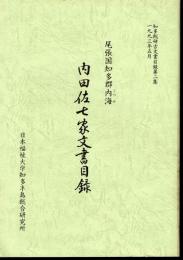 知多総研古文書目録第二集
一九九三年五月
尾張国知多郡内海
内田佐七家文書目録
日本福祉大学知多半島総合研究所